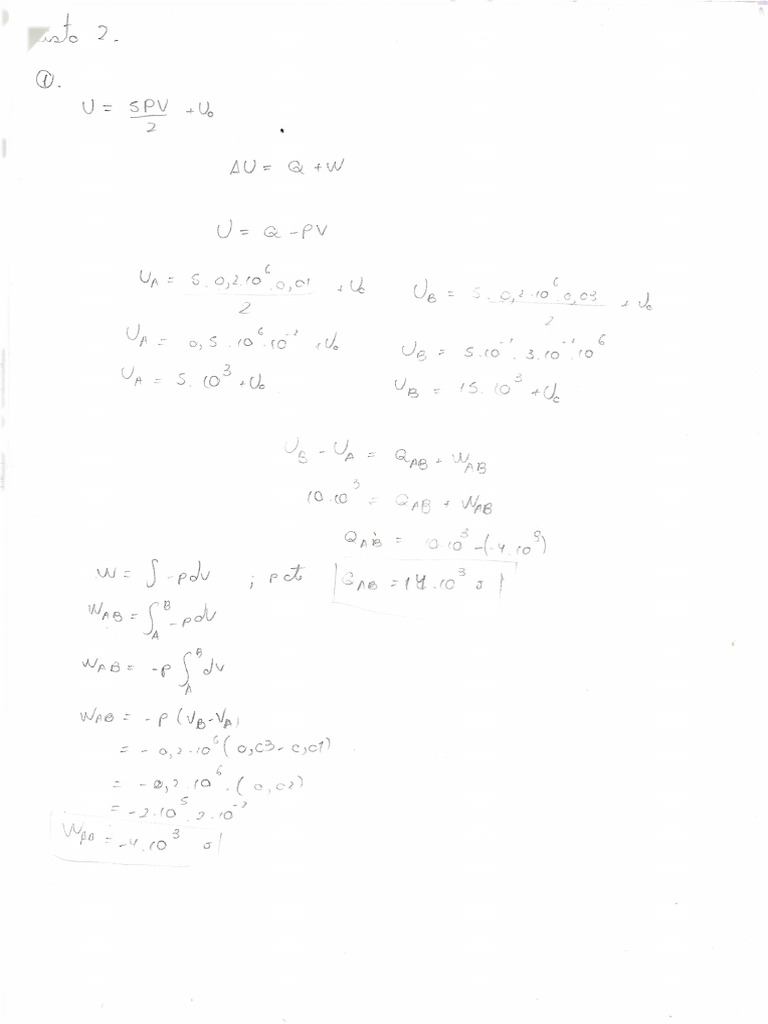 2.
①.
U = 5PV/2 + U₀
ΔU = Q + W
U = Q - PV
U_A = 5.0,2.10⁶.0,01/2 + U₀
U_B = 5.0,2.10⁶.0,03/2 + U₀
U_A = 0,5.10⁶.10⁻² + U₀
U_B = 5.10⁻¹.3.10⁻².10⁶
U_A = 5.10³ + U₀
U_B = 15.10³ + U₀
U_B - U_A = Q_AB + W_AB
10.10³ = Q_AB + W_AB
Q_AB = 10.10³ - (-4.10³)
W = ∫ -pdv ; p cte
Q_AB = 14.10³ J
W_AB = ∫_A^B -pdv
W_AB = -p ∫_A^B dv
W_AB = -P (V_B - V_A)
= -0,2.10⁶ (0,03 - 0,01)
= -0,2.10⁶.(0,02)
= -2.10⁵.2.10⁻²
W_AB = -4.10³ J